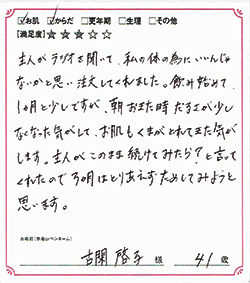 ☑お肌 ☑からだ □更年期 □生理 □その他
[満足度]★★★☆☆
主人がラジオを聞いて、私の体の為にいいんじゃ
ないかと思い注文してくれました。飲み始めて、
1ヶ月と少しですが、朝おきた時だるさが少し
なくなった気がして、お肌もくまがとれてきた気が
します。主人がこのまま続けてみたら?と言って
くれたので3ヶ月はとりあえずためしてみようと
思います。
お名前(本名orペンネーム)
古閑 啓子 様 41歳